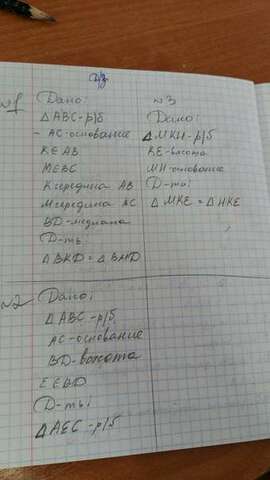 д/з
№1 Дано:
△ABC-р/б
- AC-основание
K∈AB
M∈BC
K середина AB
M середина AC
BD-медиана
Д-ть
△BKD = △BMD
№3
Дано:
△MKH-р/б
KE-высота
MH-основание
Д-ть:
△MKE = △HKE
№2 Дано:
△ABC-р/б
AC-основание
BD-высота
E∈BD
Д-ть:
△AEC-р/б